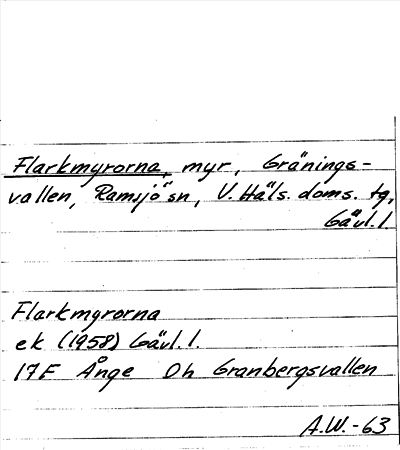 Flarkmyrorna, myr, Gränings-
vallen, Ramsjö sn, V. Häls. doms. tg,
Gävl. l.
Flarkmyrorna
ek (1958) Gävl. l.
17F Ånge 0h Granbergsvallen
A.W. - 63